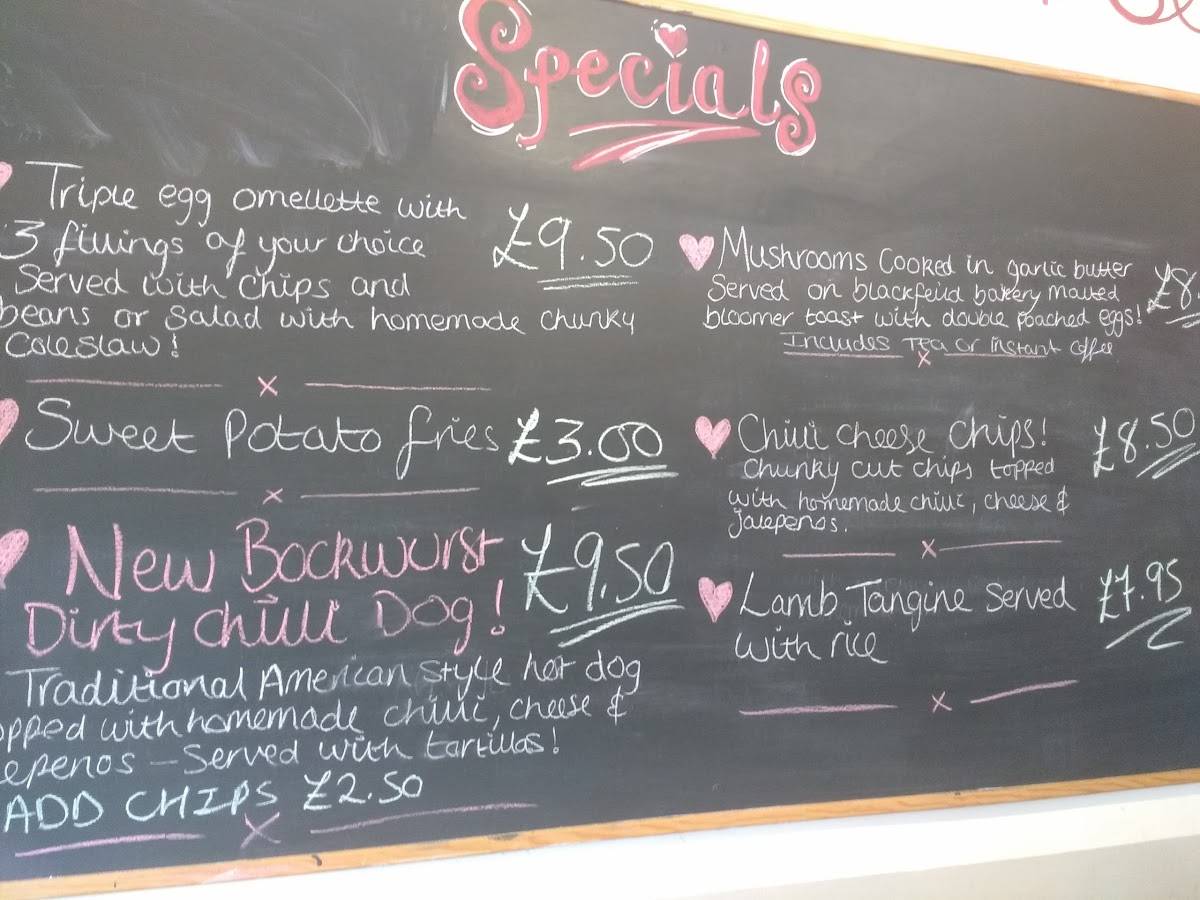 Specials
Triple egg omellette with
3 fillings of your choice
Served with chips and
beans or salad with homemade chunky
Coleslaw!
£9.50
Sweet Potato fries £3.00
New Bockwurst
Dirty chilli Dog!
£9.50
Traditional American style hot dog
opped with homemade chilli, cheese &
epenos - Served with tortillas!
ADD CHIPS £2.50
Mushrooms Cooked in garlic butter
Served on blackfeild bakery malted
bloomer toast with double poached eggs!
Includes TEA or instant coffee
£8.
Chilli cheese chips! £8.50
Chunky cut chips topped
with homemade chilli, cheese &
jalepenos.
Lamb Tangine Served £7.95
with rice